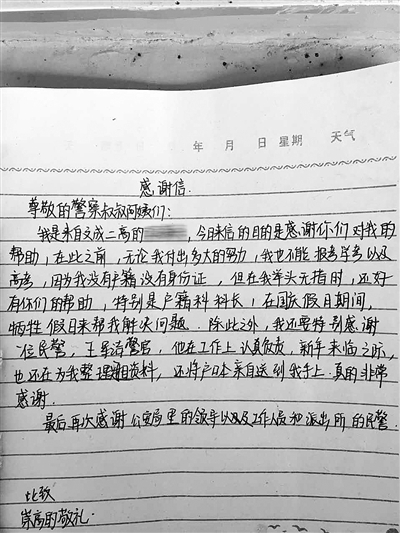 年 月 日 星期 天气
感谢信
尊敬的警察叔叔阿姨们：
我是来自文成二高的 ，今日来信的目的是感谢你们对我的
帮助，在此之前，无论我付出多大的努力，我也不能报考学考以及
高考，因为我没有户籍没有身份证，但在我举头无措时，还好
有你们的帮助，特别是户籍科科长！在国庆假日期间，
牺牲假日来帮我解决问题．除此之外，我还要特别感谢
一位民警，王军 警官，他在工作上认真负责，新年来临之际，
也还在为我整理 资料，还将户口本亲自送到我手上．真的非常
感谢．
最后再次感谢公安局里的领导以及工作人员和派出所的民警．
此致
崇高的敬礼．